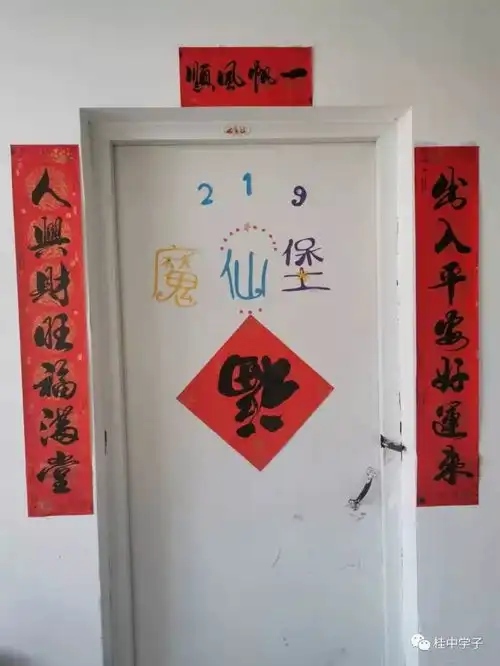 一帆風順
出入平安好運来
人興財旺福满堂
219
魔仙堡
福
桂中学子